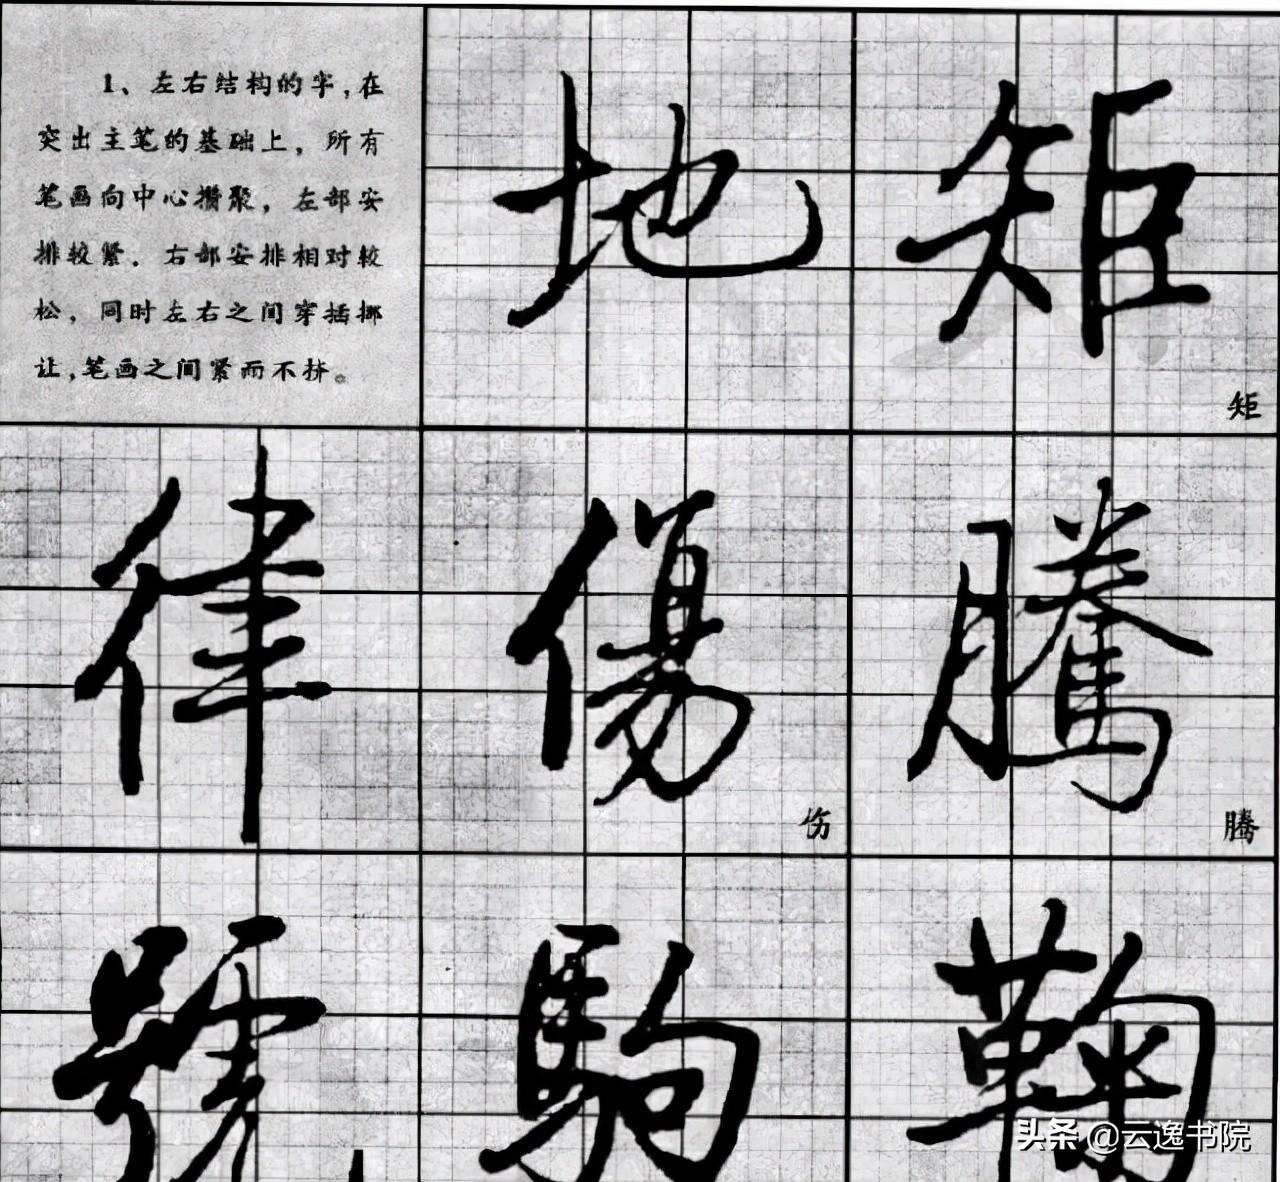 1、左右结构的字,在
突出主笔的基础上，所有
笔画向中心攒聚，左部安
排较紧．右部安排相对较
松，同时左右之间穿插挪
让,笔画之间紧而不挤。
地
矩
矩
律
傷
伤
騰
騰
號
駒
鞠
头条 @云逸书院